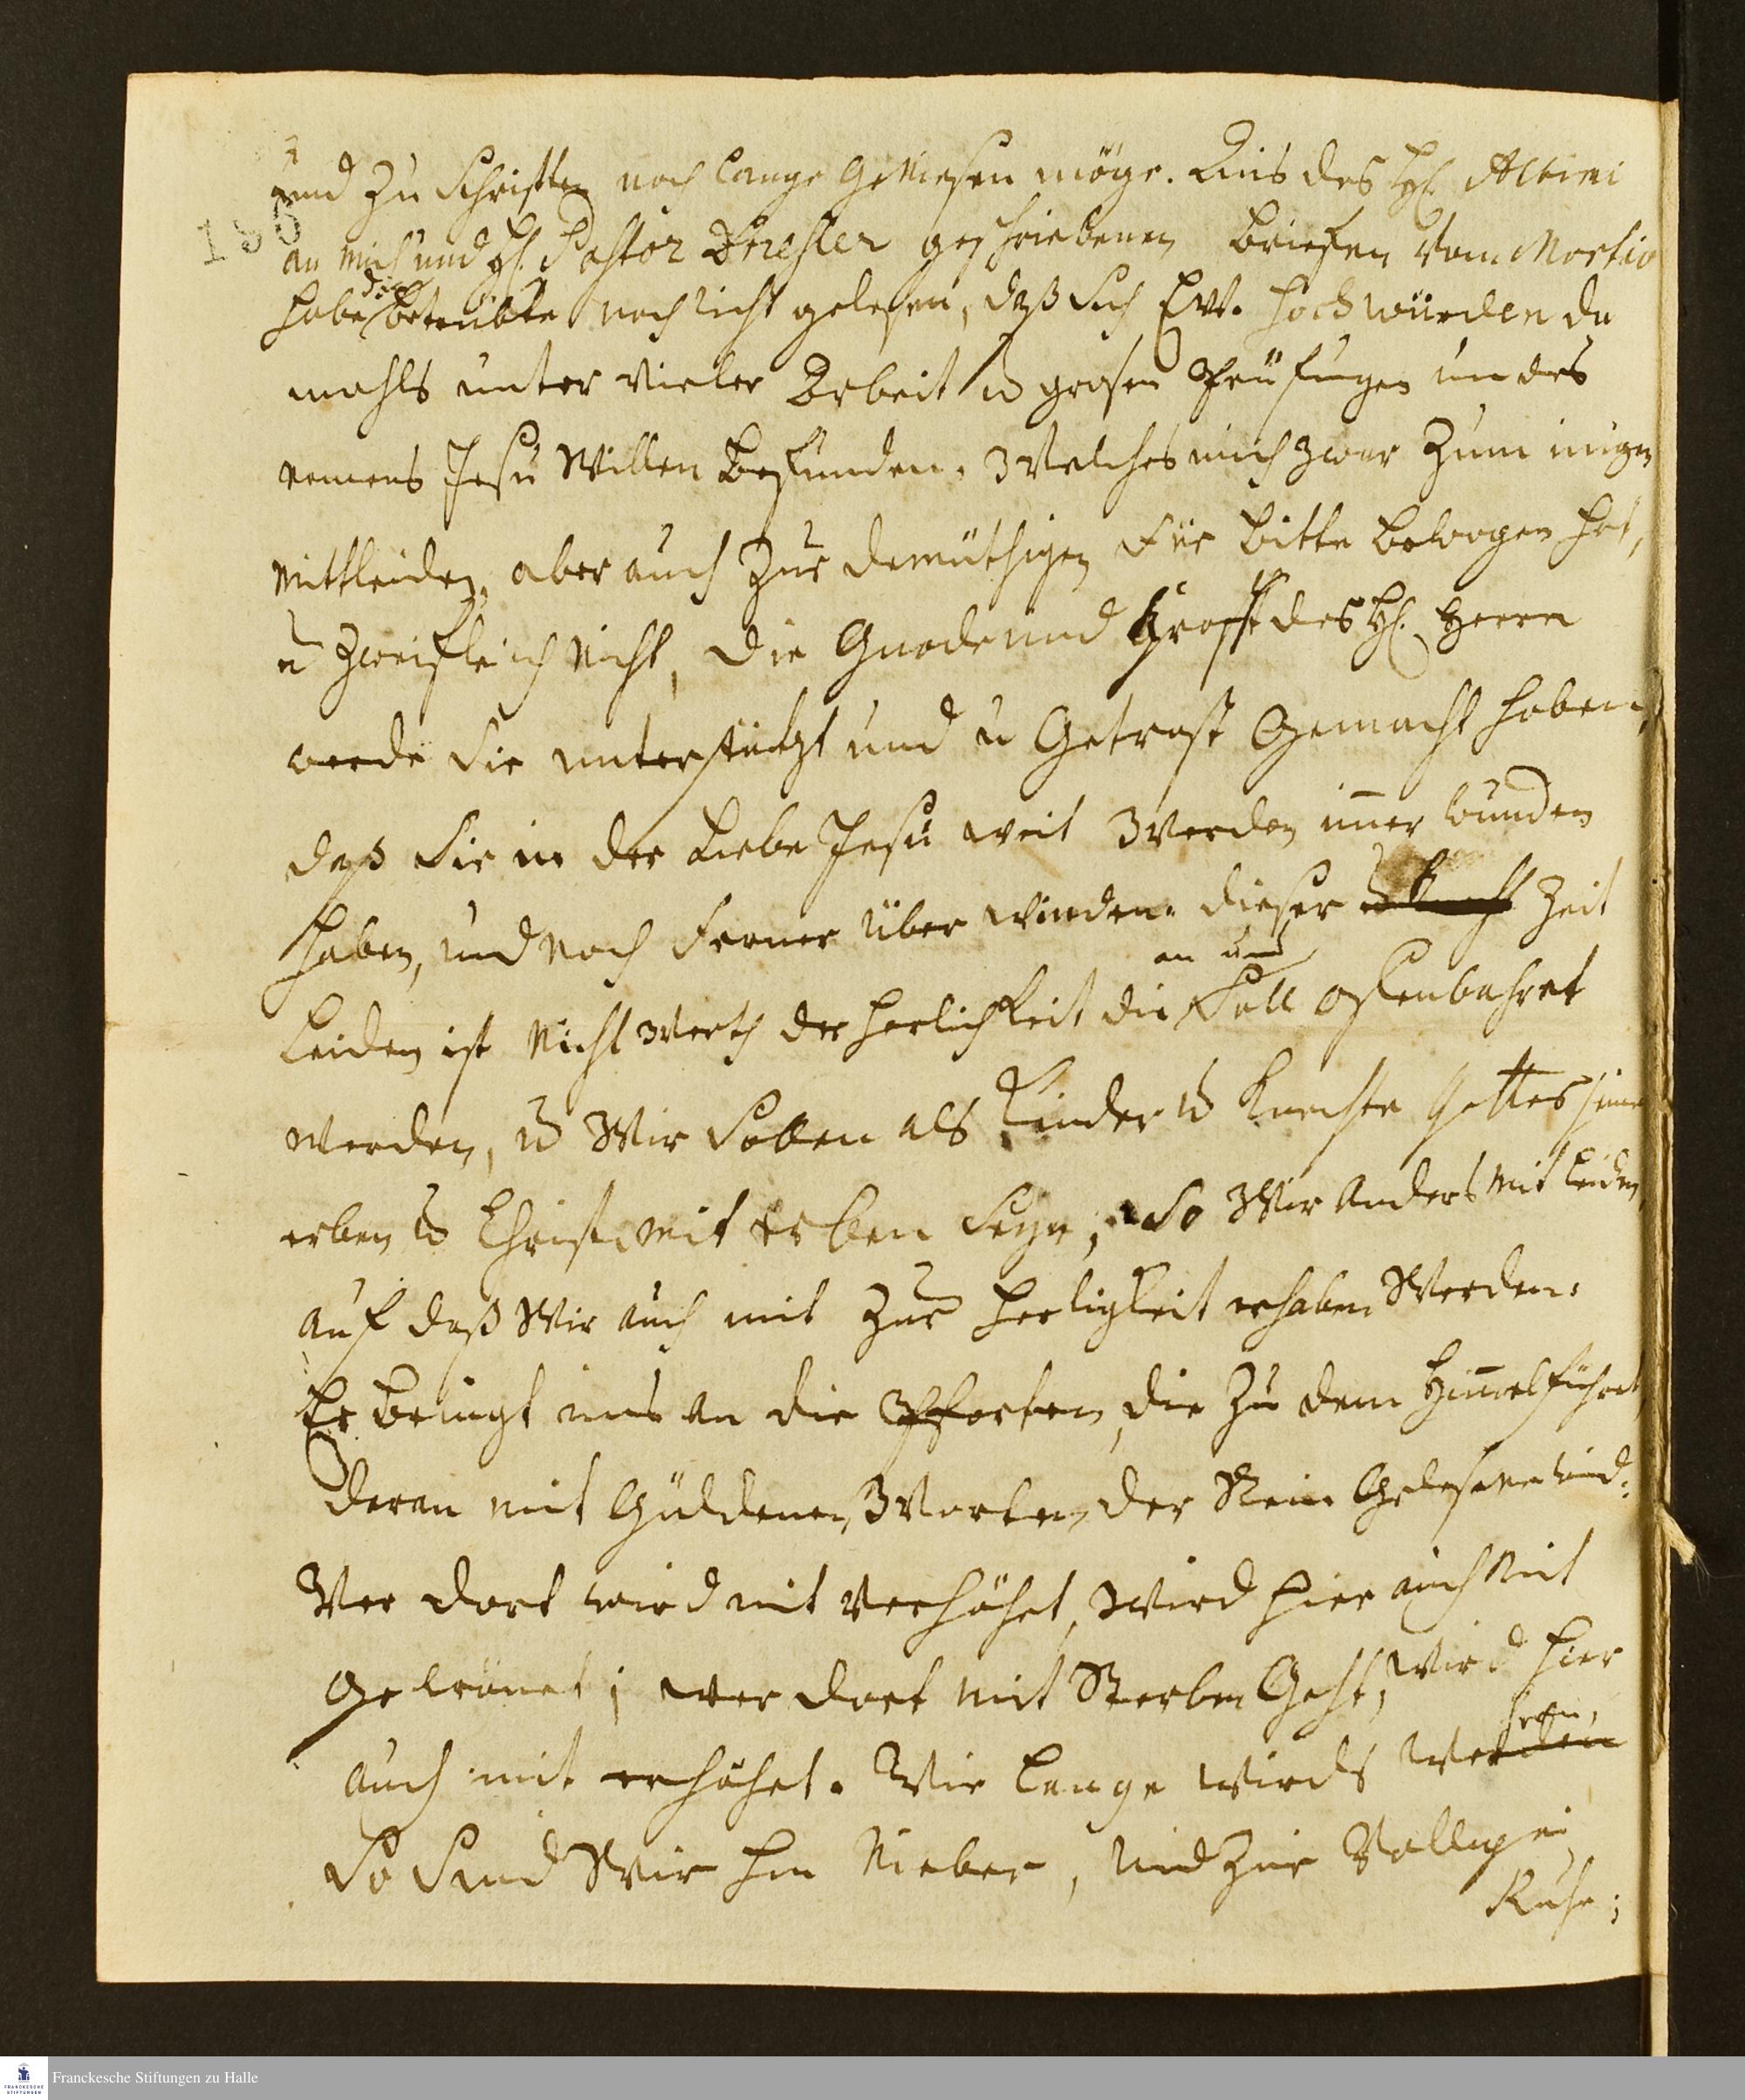 und zu schriften noch lange geniesen möge. Aus des H. Albini
186
an mich und H. Pastor Dresler geschriebenen briefen vom Martio
habe die betrübte nachricht gelesen, daß sich Ew. Hochwürden da
mahls unter vieler Arbeit u. grosen Prüfungen um des
namens Jesu willen befunden. Welches mich zwar zum inigen
mittleiden, aber auch zur demüthigen für bitte bewogen hat,
u zweifle ich nicht, die Gnade und Krafft des H. Herrn
werde sie unterstützt und u Getrost Gemacht haben,
daß sie in der Liebe Jesu weit werden über wunden
haben, und noch ferner über winden. dieser Zeit
an uns
Leiden ist nicht werth der herlichkeit die soll offenbahret
werden, u. wir sollen als Kinder u. Knechte Gottes seine
erben u. Christi mit erben seyn, so wir anders mit leiden,
auf daß wir auch mit zur herligkeit erhaben werden.
Er bringt uns an die Pforten, die zu dem Himel führet,
daran mit Güldenen Worten der Reim Gelesen wird:
Wer dort wird mit verhöhet, wird hier auch mit
gekrönet; wer dort mit Sterben Geht, wird hier
auch mit erhöhet. Wie lange wirds wehren,
so sind wir hin nieber, und zur Völligen
Ruhe;
Franckesche Stiftungen zu Halle